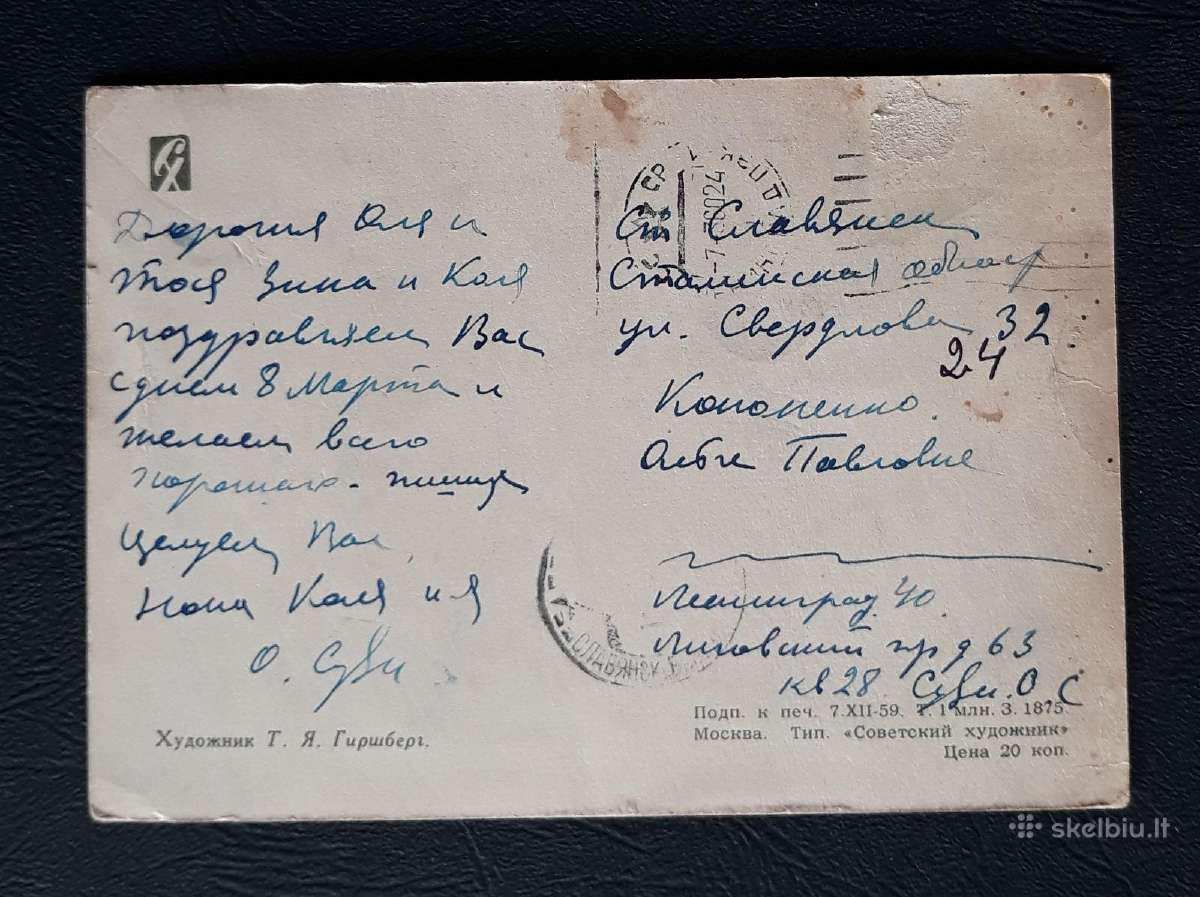 Дорогия Оля и
Тося Зина и Коля
поздравляем Вас
с днем 8 Марта и
желаем всего
хорошаго.
целуем Вас,
Нона Коля и я
О.
Ст Славянск
Сталинская област
ул. Свердлова 32.
24
Кононенко.
Ольге Павловне
Ленинград 40
Лиговский пр д 63
кв 28. О С
СЛАВЯНСК
Художник Т. Я. Гиршберг.
Подп. к печ. 7.XII-59. Т. 1 млн. З. 1875.
Москва. Тип. «Советский художник»
Цена 20 коп.
skelbiu.lt